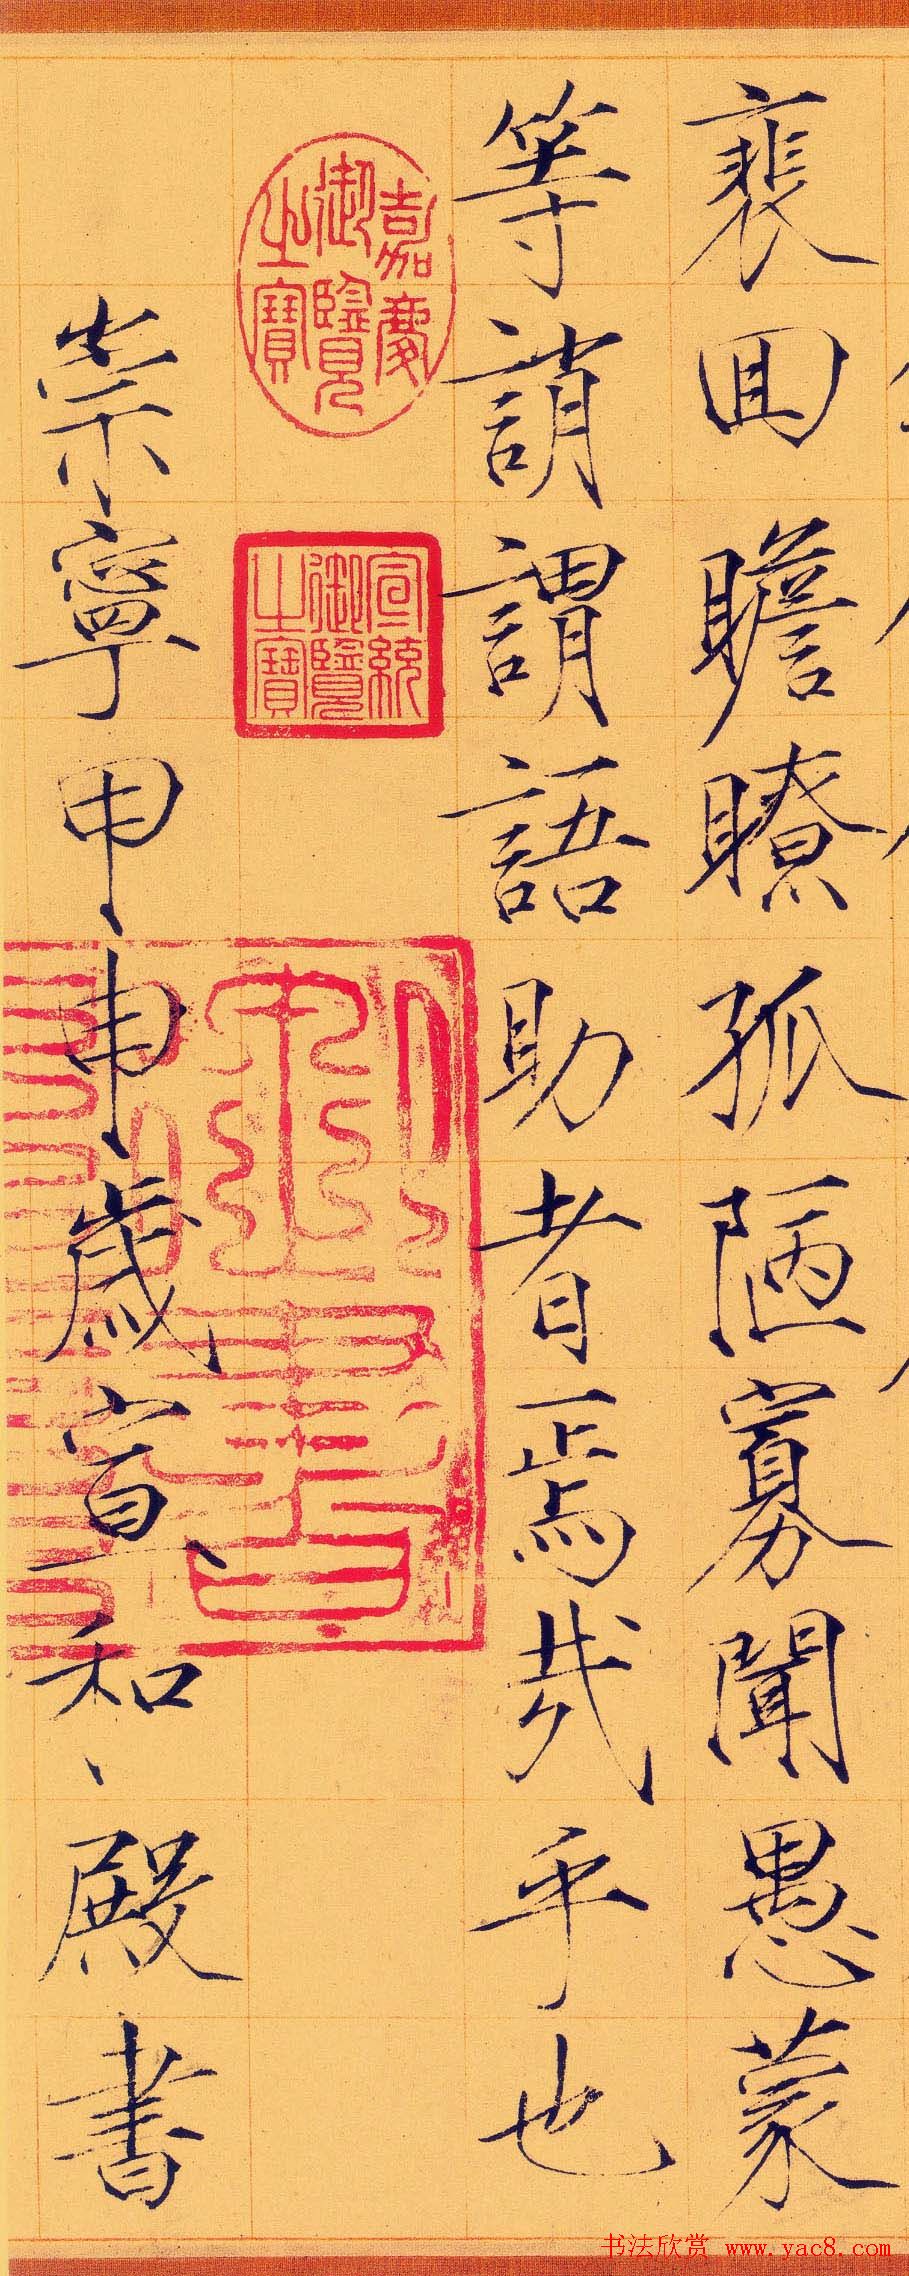 裵回瞻眺孤陋寡聞愚蒙
等誚謂語助者焉哉乎也
嘉慶御覽之寶
宣統御覽之寶
崇寧甲申歲宣和殿書
书法欣赏 www.yac8.com